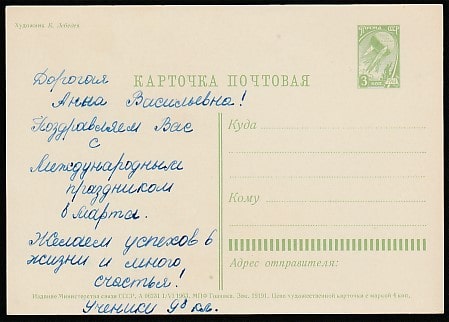 Художник К. Лебедев
Дорогая
КАРТОЧКА ПОЧТОВАЯ
Анна Васильевна!
Поздравляем Вас
с
Международным
праздником
8 марта.
Желаем успехов в
жизни и много
счастья!
Ученики 9б кл.
Куда
Кому
Адрес отправителя:
Издание Министерства связи СССР. 1961. МПФ Гознака. Зак. Цена художественной карточки с маркой 4 коп.
3